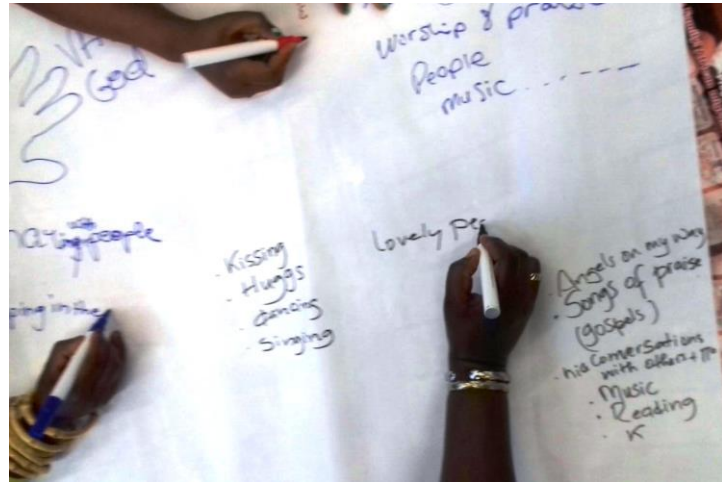 God
Worship & praise
People
music.......
with
sharing people
Kissing
Huggs
dancing
Singing
Lovely pe
Angels on my way
Songs of praise
(gospels)
his Conversations
with others +
Music
Reading
K